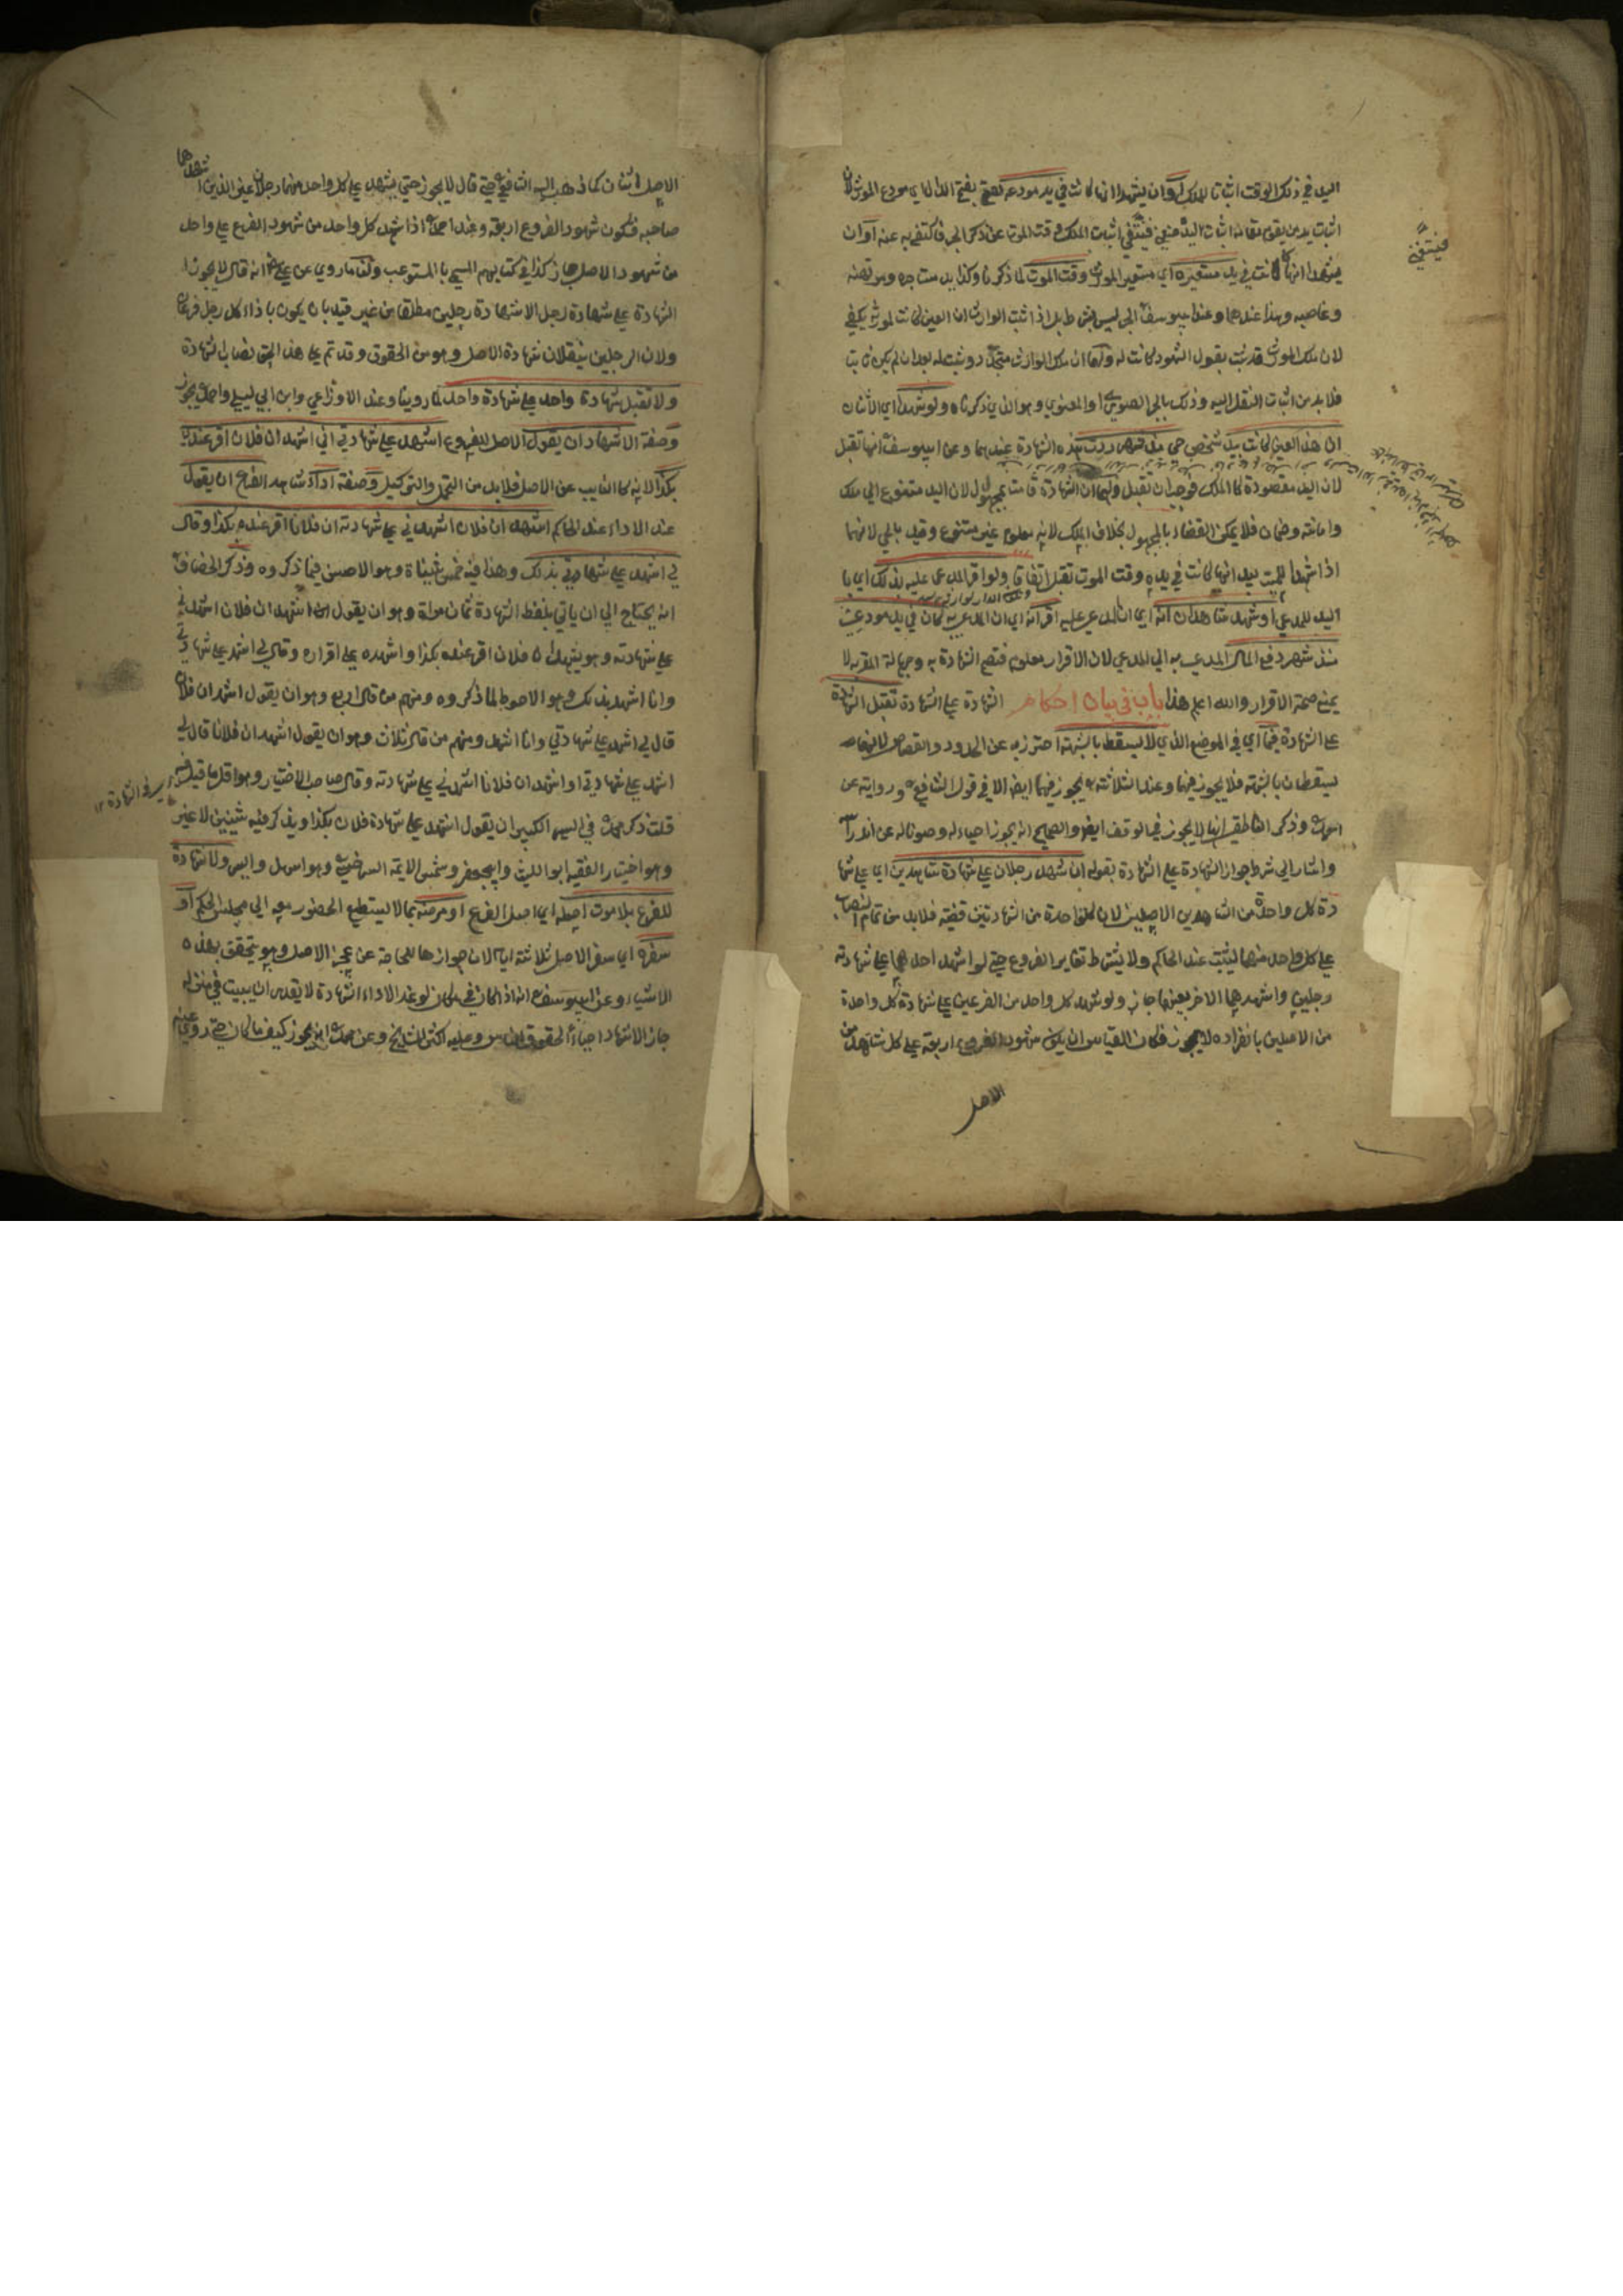 اليد في ذلك الوقت اثباتا للملك او ان يشهدا انها كانت في يد مودعه بفتح الدال اي مودع المورث لان
اثبات يد من يقوم مقامه اثبات اليد فيغني اثبات الملك وقت الموت عن ذكر الجر فاكتفي به عنه او ان
يشهدا انها كانت في يد مستعيره اي مستعير المورث وقت الموت لما ذكرنا وكذا يد مستاجره ومرتهنه
وغاصبه وهذا عندهما وعند ابي يوسف الجر ليس بشرط بل اذا ثبت الوارث ان العين كانت لمورثه يكفي
لان ملك المورث قد ثبت بقول الشهود كانت له ولهما ان ملك الوارث متجدد وثبت له بعد ان لم يكن ثابتا
فلا بد من اثبات النقل اليه وذلك بالجر الصوري او المعنوي وهو الذي ذكرناه ولو شهدا اي الاثنان
ان هذا العين كانت بيد شخص حي منذ شهر ردت هذه الشهادة عندهما وعن ابي يوسف انها تقبل
لان اليد مقصودة كالملك فوجب ان تقبل ولهما ان الشهادة قامت بمجهول لان اليد متنوع الي ملك
وامانة وضمان فلا يمكن القضاء بالمجهول بخلاف الملك لانه معلوم غير متنوع وقيد بالحي لانهما
اذا شهدا للميت بيد انها كانت في يده وقت الموت تقبل اتفاقا ولو اقر المدعى عليه بذلك اي با
اليد للمدعي او شهد شاهدان انه اي ان المدعي عليه اقر انه اي ان المدعي به كان في يد مودعيت
منذ شهر دفع المال المدعي به الي المدعي لان الاقرار معلوم فتصح الشهادة به وجهالة المقر به لا
يمنع صحة الاقرار والله اعلم هذا باب في بيان احكام الشهادة علي الشهادة تقبل الشهادة
علي الشهادة فيما اي في الموضع الذي لا يسقط بالشبهة احترز به عن الحدود والقصاص لانهما
يسقطان بالشبهة فلا يجوز فيهما وعند الثلاثة يجوز فيهما ايضا الا في قول الشافعي ورواية عن
احمد وذكر الناطفي انها لا يجوز في الوقف ايضا والصحيح انه يجوز احياء له وصونا له عن اندراسه
واشار الي شرط جواز الشهادة علي الشهادة بقوله ان شهد رجلان علي شهادة شاهدين اي علي شها
دة كل واحدة من الشاهدين الاصلين لان كلواحدة من الشهادتين قضية فلا بد من تمام النصاب
علي كل واحد منهما ليثبت عند الحاكم ولا يشترط تغاير الفروع حتي لو اشهد احدهما علي شهادته
رجلين واشهدهما الاخر بعينهما جاز ولو شهد كل واحد من الفرعين علي شهادة كل واحدة
من الاصلين بانفراده لا يجوز فكان القياس ان يكون شهود الفروع اربعة علي كل شاهد من
الاصل
الاصل اثنان كما ذهب اليه الشافعي حتي قال لا يجوز حتي يشهد علي كل واحد منهما رجلان غير الذين اشهدهما
صاحبه فيكون شهود الفروع اربعة وعند احمد اذا شهد كل واحد من شهود الفرع علي واحد
من شهود الاصل جاز كذا في كتابهم المسمي بالمستوعب ولنا ما روي عن علي انه قال لا يجوز
الشهادة علي شهادة رجل الا شهادة رجلين مطلقا من غير قيد بان يكون باذاء كل رجل فرعان
ولان الرجلين ينقلان شهادة الاصل وهو من الحقوق وقد تم علي هذا الحق نصاب الشهادة
ولا تقبل شهادة واحد علي شهادة واحد لما روينا وعند الاوزاعي وابن ابي ليلي واحمد يجوز
وصفة الاشهاد ان يقول الاصل للفروع اشهد علي شهادتي اني اشهد ان فلان اقر عندي
بكذا لانه كالنايب عن الاصل فلا بد من التحمل والتوكيل وصفة اداء شاهد الفرع ان يقول
عند الاداء عند الحاكم اشهد ان فلان اشهدني علي شهادته ان فلانا اقر عنده بكذا وقال
لي اشهد علي شهادتي بذلك وهذا فيه خمس شينات وهو الاحسن فيما ذكروه وذكر الخصاف
انه يحتاج الي ان ياتي بلفظ الشهادة ثمان مراة وهو ان يقول اشهد ان فلان اشهدني
علي شهادته وهو يشهد ان فلان اقر عنده بكذا واشهده علي اقراره وقال لي اشهد علي شهادتي
وانا اشهد بذلك وهو الاحوط لما ذكروه ومنهم من قال اربع وهو ان يقول اشهد ان فلان
قال لي اشهد علي شهادتي وانا اشهد ومنهم من قال ثلاث وهو ان يقول اشهد ان فلانا قال لي
اشهد علي شهادتي او اشهد ان فلانا اشهدني علي شهادته وقال صاحب الاختيار وهو اقل ما قيل
قلت ذكر محمد في السير الكبير ان يقول اشهد علي شهادة فلان بكذا ويذكر فيه شينين لا غير
وهو اختيار الفقيه ابو الليث وابي جعفر وشمس الايمة السرخسي وهو اسهل وايسر ولا شهادة
للفرع بلا موت اصله اي اصل الفرع او مرضه بما لا يستطيع الحضور معه الي مجلس الحكم او
سفره اي سفر الاصل ثلاثة ايام لان جوازها للحاجة عن عجز الاصل وهو يتحقق بهذه
الاشياء وعن ابي يوسف انه اذا كان في مكان لو غدا لاداء الشهادة لا يقدر ان يبيت في منزله
جاز الاشهاد احياء لحقوق الناس وعليه اكثر المشايخ وعن محمد انه يجوز كيف ما كان حتي روي عنه